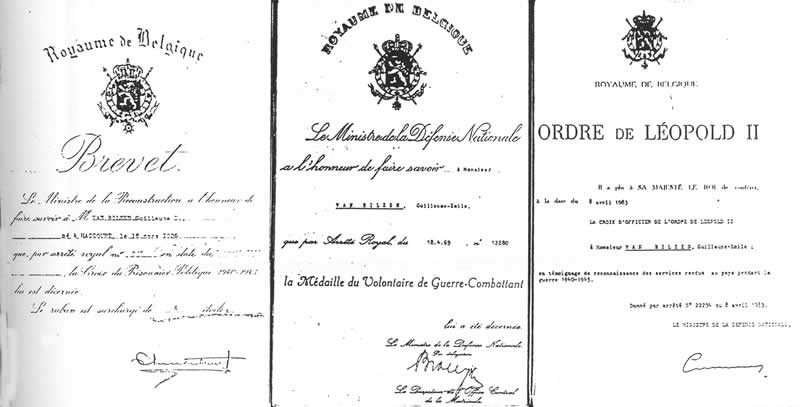 Royaume de Belgique
Brevet.
Le Ministre de la Reconstruction a l'honneur de
faire savoir à M. VAN BILZEN, Guillaume
né A HACCOURT, le 18 mars
que, par arrêté royal nº en date du
, la Croix du Prisonnier Politique 1940-1945
lui est décernée.
Le ruban est surchargé de étoiles
ROYAUME DE BELGIQUE
Le Ministre de la Défense Nationale
a l'honneur de faire savoir à Monsieur
VAN BILZEN, Guillaume-Emile,
que par Arrêté Royal, du 12.4.69 nº 12280
la Médaille du Volontaire de Guerre-Combattant
lui a été décernée.
Le Ministre de la Défense Nationale
Par délégation
Le Directeur de l'Office Central
de la Matricule
ROYAUME DE BELGIQUE
ORDRE DE LÉOPOLD II
Il a plu à SA MAJESTÉ LE ROI de conférer,
à la date du 8 avril 1983
LA CROIX D'OFFICIER DE L'ORDRE DE LEOPOLD II
à Monsieur VAN BILZEN, Guillaume-Emile ;
en témoignage de reconnaissance des services rendus au pays pendant la
guerre 1940-1945.
Donné par arrêté Nº 22294 du 8 avril 1983.
LE MINISTRE DE LA DEFENSE NATIONALE,